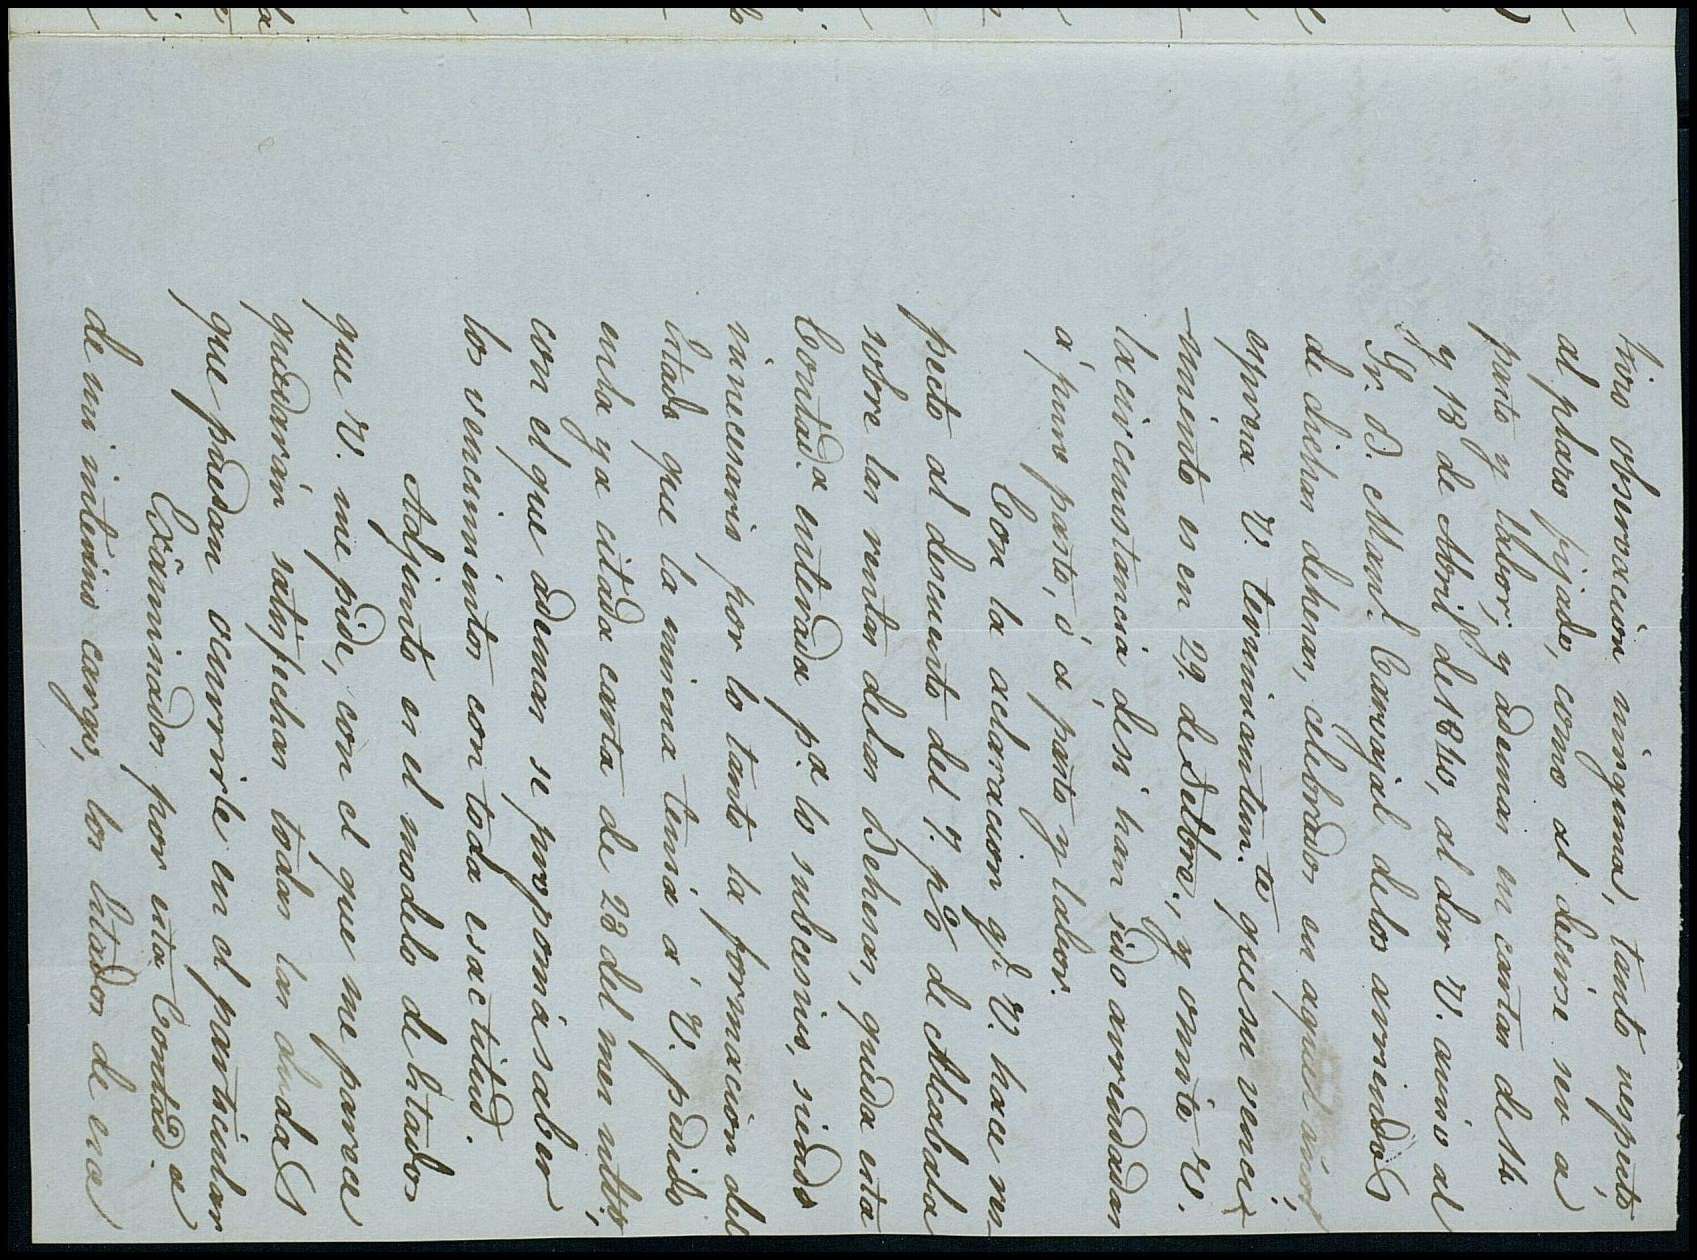 hizo observacion ninguna, tanto respecto
al plazo fijado, como al decirse ser a
pasto y labor; y ademas en cartas de 14
y 13 de Abril de 1860, al dar V. aviso al
Sr. D. Manl. Carvajal de los arriendos
de dichas dehesas, celebrados en aquel
espresa V. terminantemte que su venci-
-miento es en 29 de Setbre., y omite V.
la circunstancia, de si han sido arrendadas
á puro pasto, ó a pasto y labor.
Con la aclaracion qe. V. hace res-
pecto al descuento del 7 p% de Alcabala
sobre las rentas de las Dehesas, queda esta
Contada. enterada pa. lo subcesivo, siendo
nineccsario por lo tanto la formacion del
Estado que la misma tenia á V. pedido
en la ya citada carta de 23 del mes ultto.,
con el que ademas se proponia saber
los vencimientos con toda esactitud.
Adjunto es el modelo de Estados
que V. me pide, con el que me parece
quedarán satisfechas todas las dudas
que puedan ocurrirle en el particular
Ecsaminados por esta Contada.
de mi interino cargo, los Estados de esa